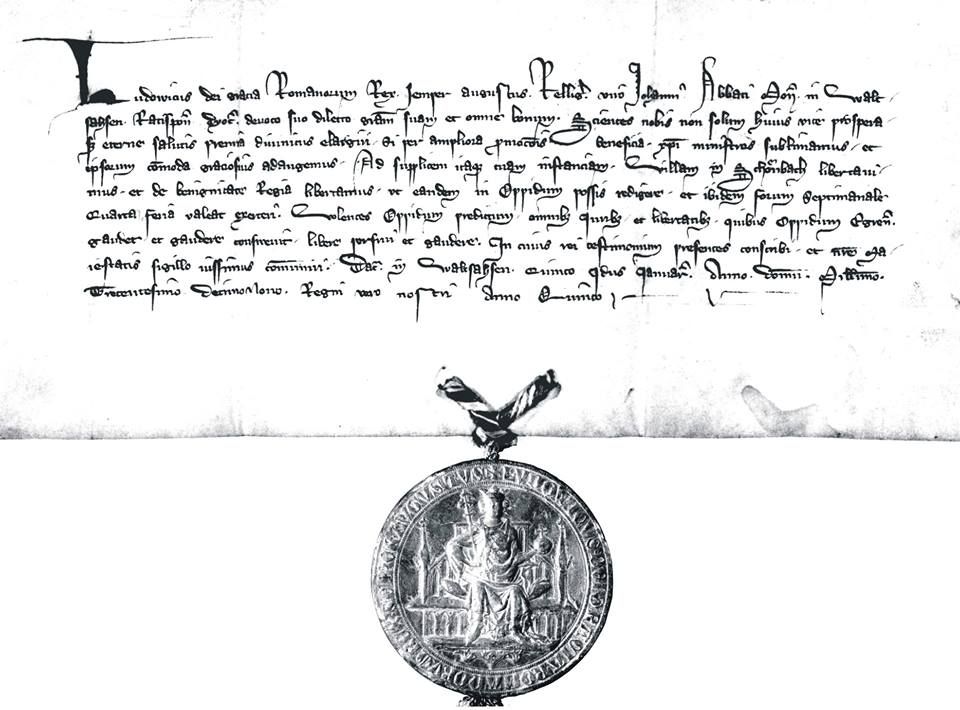 Ludowicus dei gracia Romanorum Rex semper augustus. Religꝰ. viro Johanni Abbati Moñ. in Walt-
sahsen. Ratispoñ. dyoc̄. devoto suo dilecto graām suam et omne bonum. Scientes nobis non solum huius vite prospera.
s; eterne salutis premia divinitus elargiri. Si per ampliora beneficia. xp̄i ministros sublimamus. et
ipsorum cōmoda graciosius adaugemus. Ad supplicem itaqꝫ tuam instanciam. Villam in Schönbach libertavi-
mus. et de benignitate Regia libertamus. vt eandem in Oppidum possis redigere. et ibidem forum Septimanale
Quarta feria valeat Volentes Oppidum predictum. omnibꝫ Juribꝫ. et libertatibꝫ. quibus Oppidum Egreñ.
gaudet et gaudere consuevit. libere et gaudere. In cuius rei testimonium presentes conscribi. et nr̄e Ma-
iestatis sigillo iussimus cōmuniri. Dat. in Waltsahsen. Quinto ydus Januar̄. Anno. domini. Millimo.
Trecentesimo decimoNono. Regni vero nostri Anno Quinto